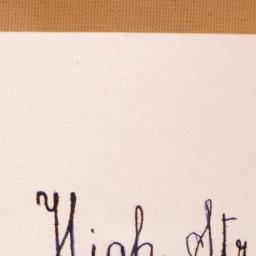 High Str